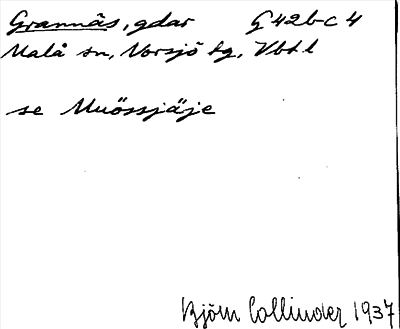 Grannäs, gdar G 42b-c 4
Malå sn, Norsjö tg, Vbtl
se Muössjäje
Björn Collinder 1937